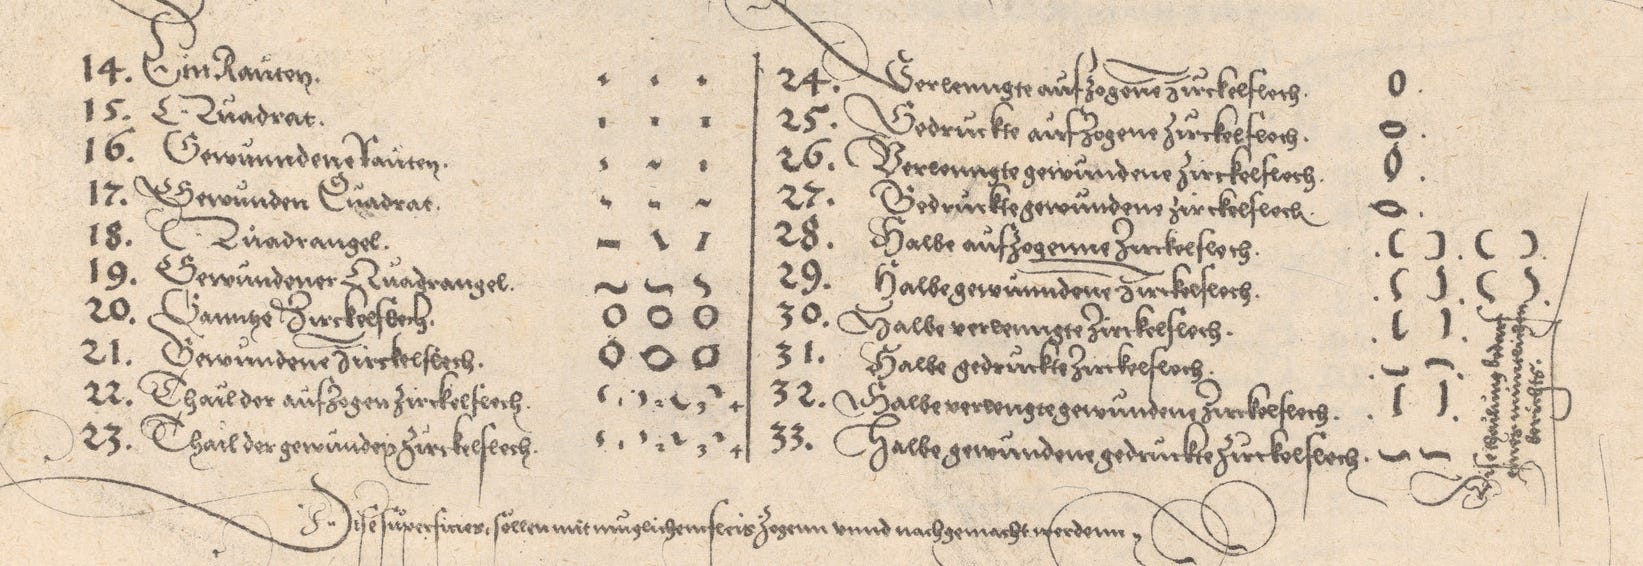 14. Ein Rauten.
15. Quadrat.
16. Gewunndene Rauten.
17. Gewunden Quadrat.
18. Quadrangel.
19. Gewundener Quadrangel.
20. Ganntze Zirckelflech.
21. Gewundene Zirckelflech.
22. Thail der aufzogen Zirckelflech.
23. Thail der gewunden Zirckelflech.
24. Verlenngte aufzogene Zirckelflech.
25. Gedruckte aufzogene Zirckelflech.
26. Verlenngte gewundene Zirckelflech.
27. Gedruckte gewundene Zirckelflech.
28. Halbe aufzogenne Zirckelflech.
29. Halbe gewunndene Zirckelflech.
30. Halbe verlenngte Zirckelflech.
31. Halbe gedruckte Zirckelflech.
32. Halbe verlengte gewundene Zirckelflech.
33. Halbe gewundene gedruckte Zirckelflech.
Dise thailung bedarf
berichts.
Dise superficies, sollen mit muglichem fleis zogenn unnd nachgemacht werdenn.